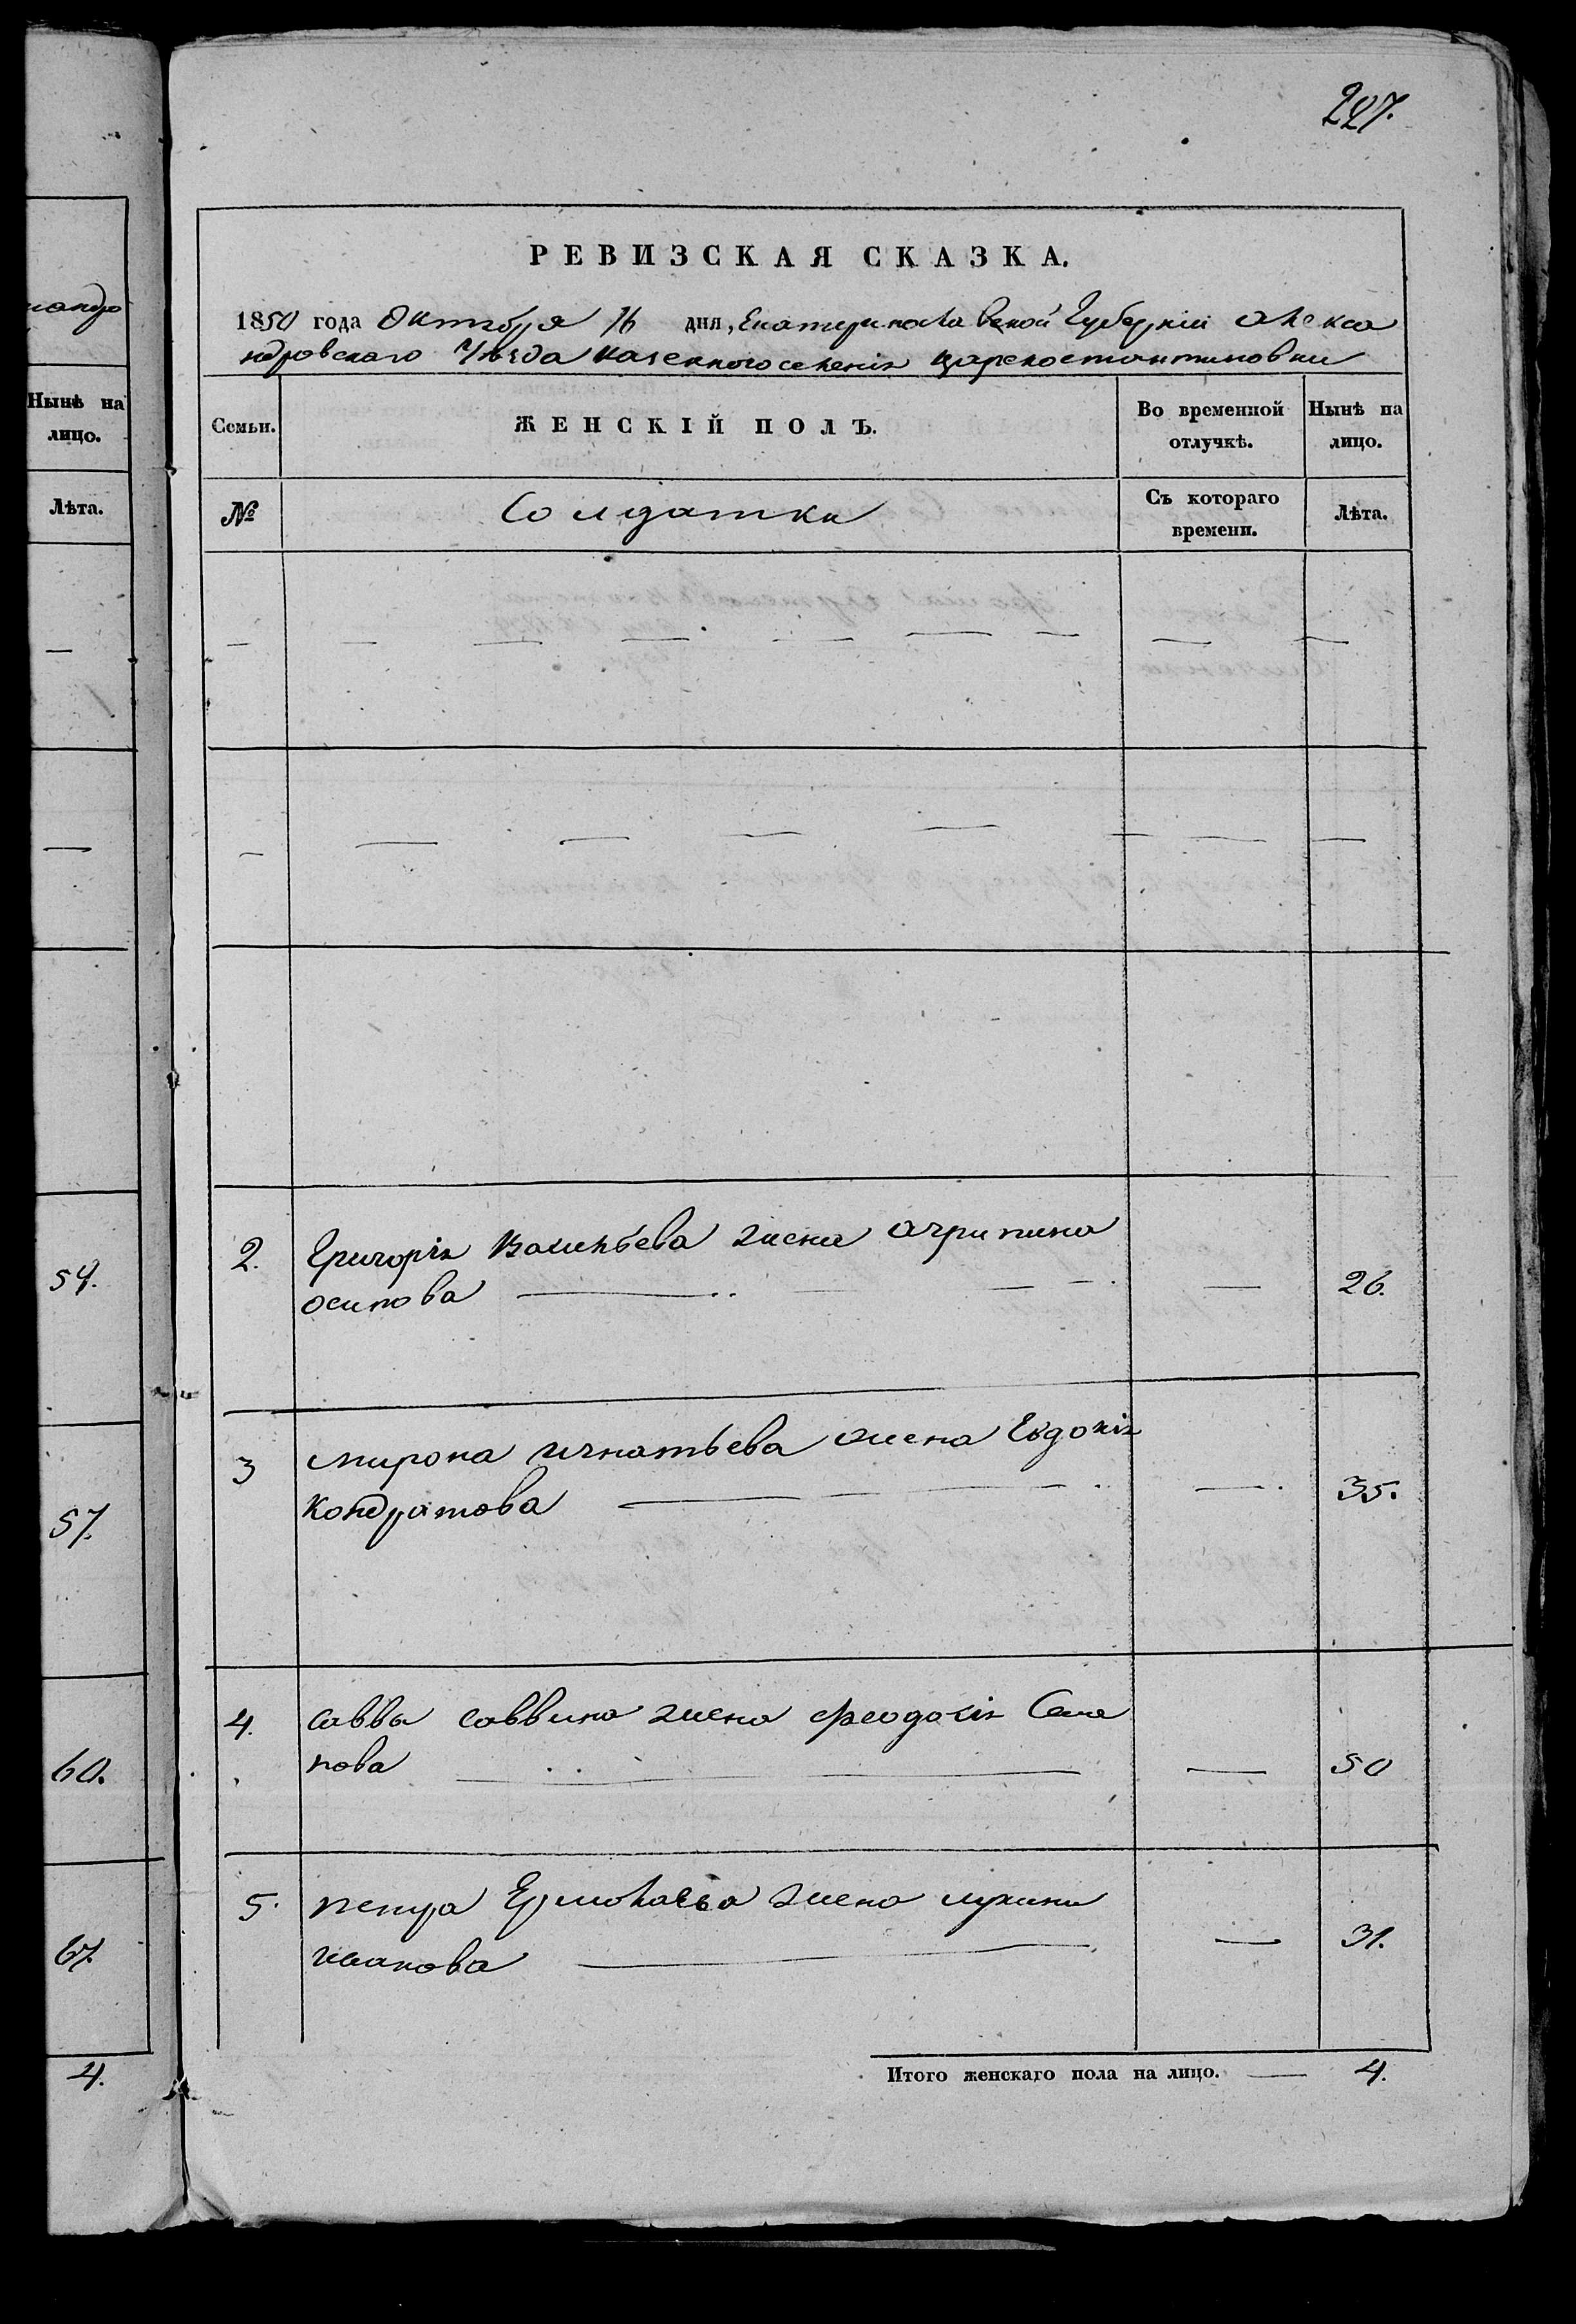 227.
РЕВИЗСКАЯ СКАЗКА.
1850 года Октября 16 дня, Екатеринославской Губернии алекса
ндровскаго Уезда казенного селения цареконстантиновки
Семьи.
ЖЕНСКІЙ ПОЛЪ.
Во временной
отлучкѣ.
Нынѣ на
лицо.
№
Солдатки
Съ котораго
времени.
Лѣта.
2. Григорія Васильева жена агрипина
осипова 26.
3 мирона игнатьева жена Евдокія
кондратова 35.
4. саввы саввина жена феодосія Семе
нова 50
5. петра Ермолаева жена
иванова 31.
Итого женскаго пола на лицо. 4.
Нынѣ на
лицо.
Лѣта.
54.
57.
60.
67.
4.